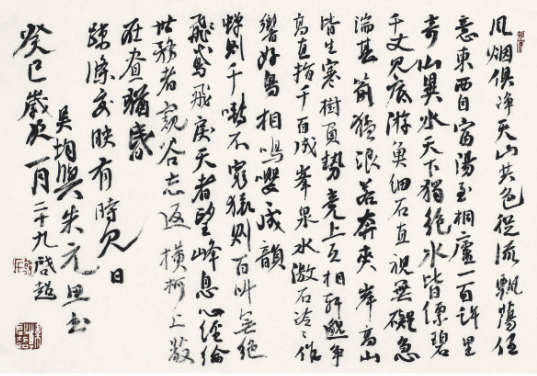 風烟俱净天山共色從流飄蕩任
意東西自富陽至桐廬一百許里
奇山異水天下獨絶水皆縹碧
千丈見底游魚細石直視無礙急
湍甚箭猛浪若奔夾岸高山
皆生寒樹負勢競上互相軒邈争
高直指千百成峯泉水激石泠泠作
響好鳥相鳴嚶成韻
蟬則千囀不窮猿則百叫無絶
鳶飛戾天者望峰息心經綸
世務者窺谷忘返横柯上蔽
在晝猶昏
疎條交映有時見日
吴均與朱元思書
癸巳歲 一月二十九 啓超